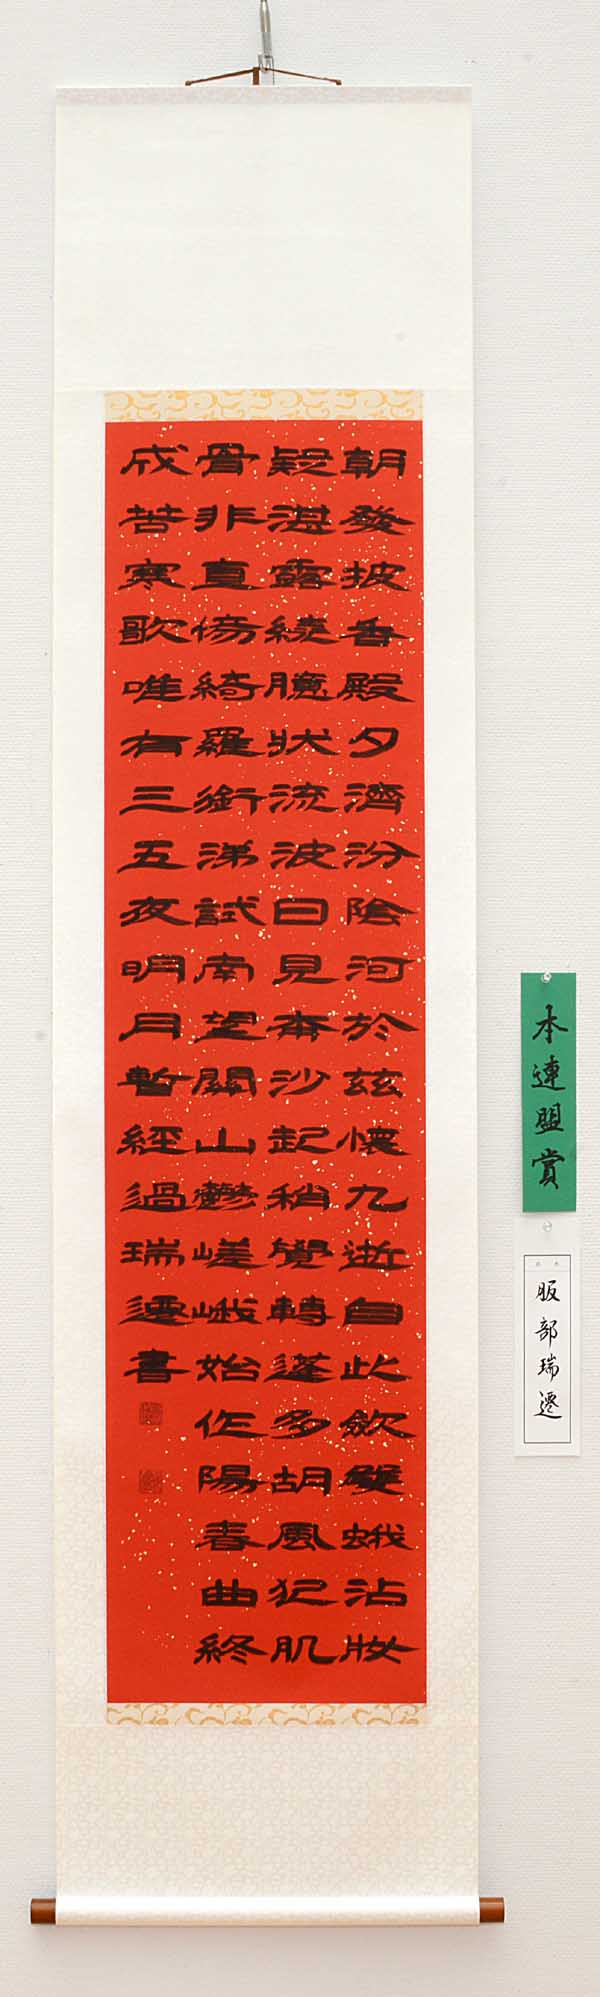 朝發披香殿夕濟汾陰河於茲懷九逝自此斂雙蛾沾妝
疑湛露繞臆狀流波日見奔沙起稍覺轉蓬多胡風犯肌
骨非直傷綺羅銜涕試南望關山鬱嵯峨始作陽春曲終
成苦寒歌唯有三五夜明月暫經過瑞遷書
本連盟賞
服部瑞遷